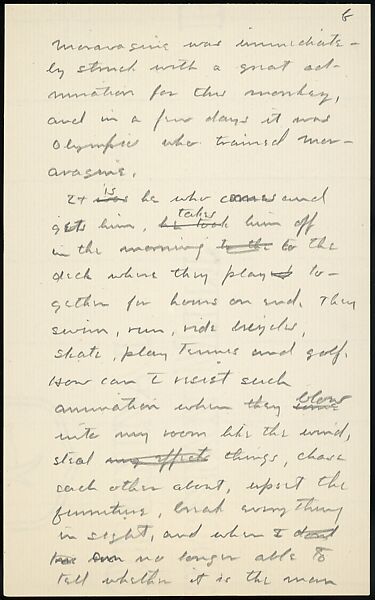 6
Moravagine was immediate-
ly struck with a great ad-
miration for this monkey,
and in a few days it was
Olympio who trained Mor-
avagine.
It was is he who comes and
gets him, he took takes him off
in the morning to the to the
deck where they play to-
gether for hours on end. They
swim, run, ride bicycles,
skate, play tennis and golf.
How can I resist such
animation when they blow
into my room like the wind,
steal my effects things, chase
each other about, upset the
furniture, break everything
in sight, and when I
am no longer able to
tell whether it is the man